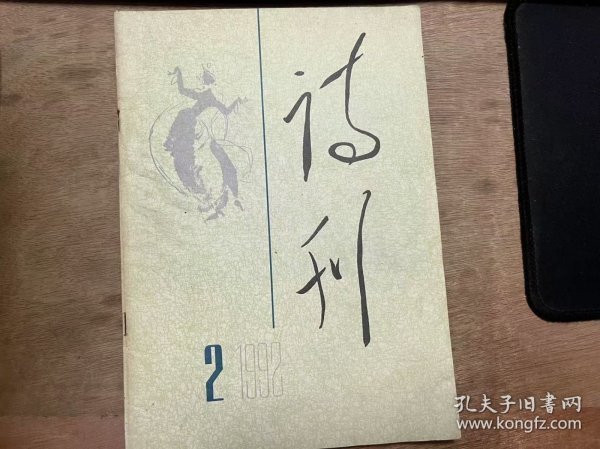 诗
刊
2 1992
孔夫子旧書网
www.kongfz.com